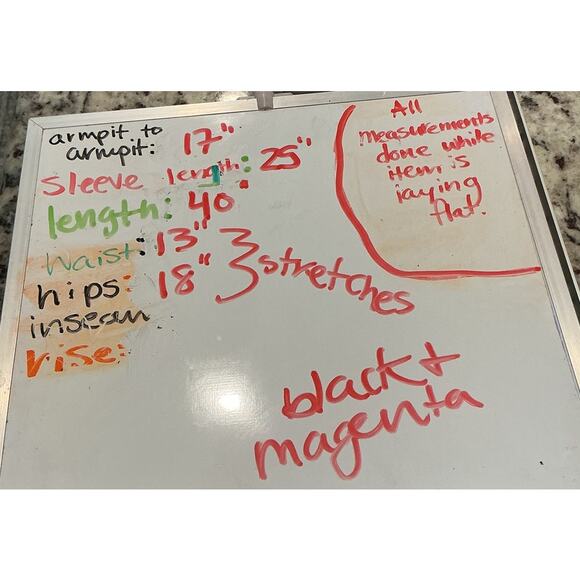 armpit to
armpit: 17"
sleeve length: 25"
length: 40"
waist: 13"
hips: 18" } stretches
inseam
rise:
All
measurements
done while
item is
laying
flat.
black +
magenta